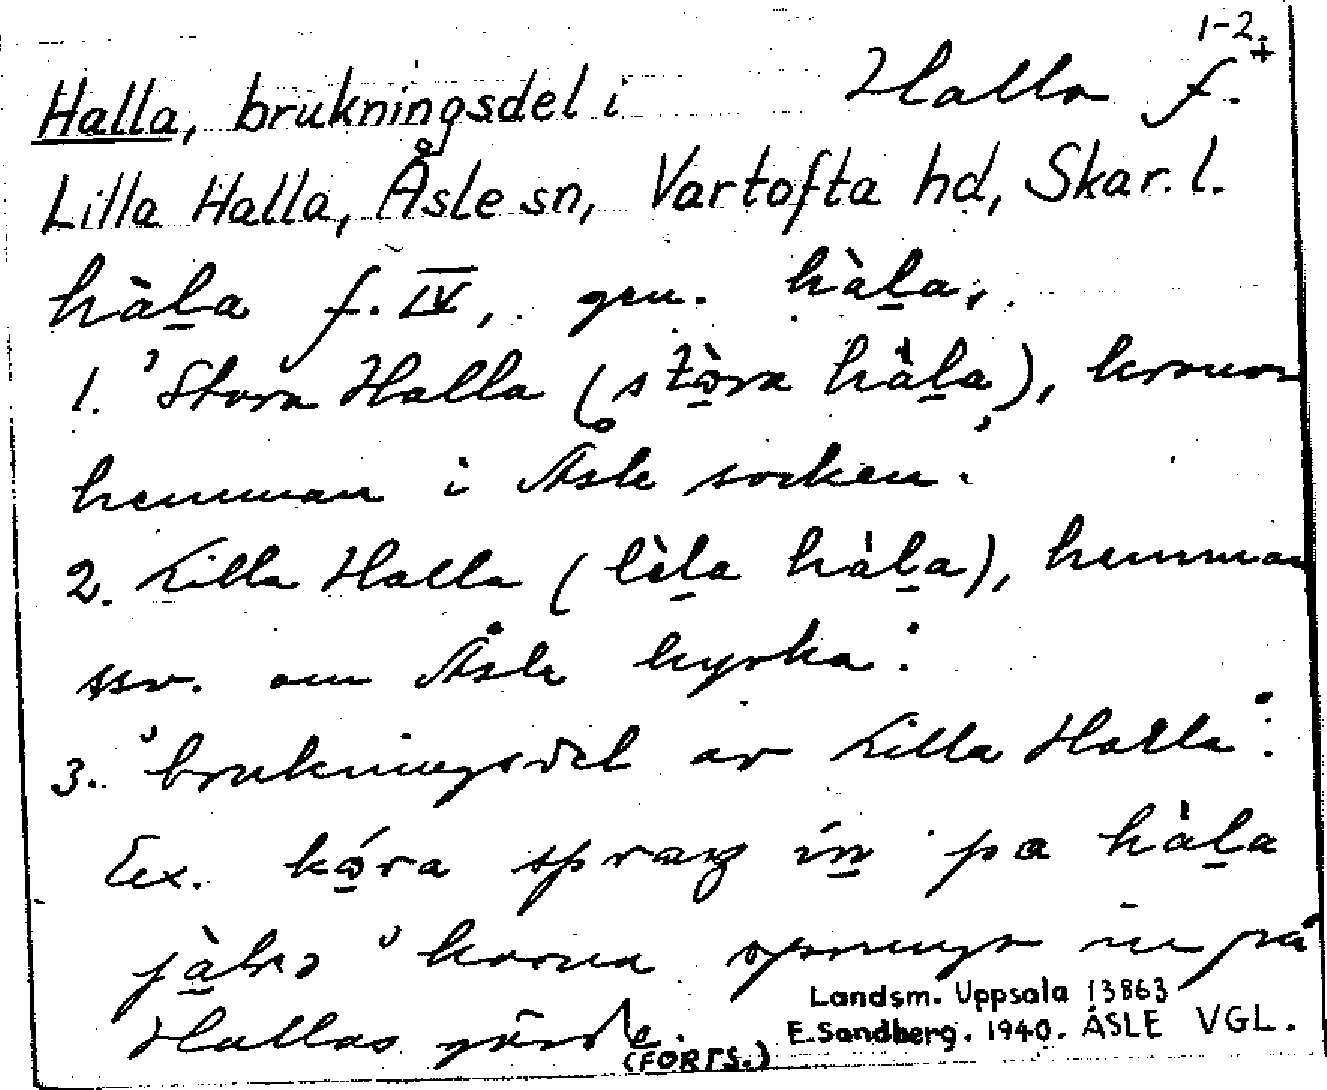 1-2.
Halla, brukningsdel i Halla f.
Lilla Halla, Åsle sn, Vartofta hd, Skar. l.
hàla f. IV, gen. hàla,
1. Stora Halla (stòra hàla), kronor
hemman i Åsle socken.
2. Lilla Halla (lèla hàla), hemman
ssv. om Åsle kyrka.
3. brukningsdel av Lilla Halla.
Ex. in pa hàla
korna in på
Hallas gärde.
(FORTS.)
Landsm. Uppsala 13863
E. Sandberg. 1940. ÅSLE VGL.